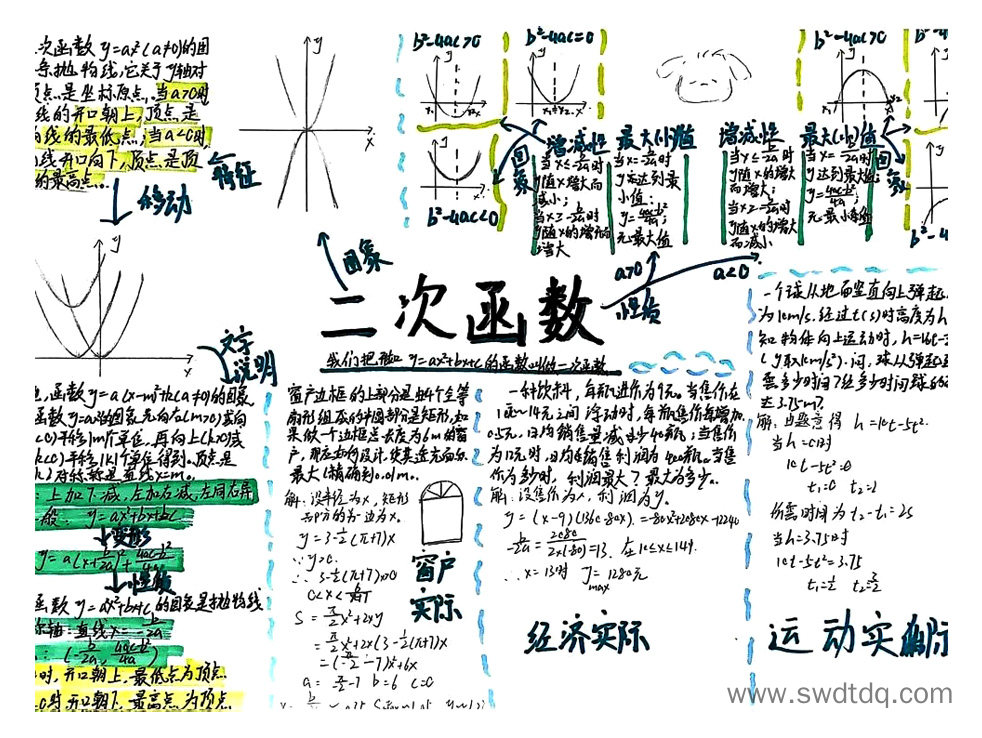 二次函数
我们把形如 y=ax²+bx+c 的函数叫做二次函数
次函数 y=ax²(a≠0)的图
象抛物线,它关于y轴对
顶点是坐标原点,当a>0时
线的开口朝上,顶点是
线的最低点;当a<0时,
线开口向下,顶点是顶
的最高点。
特征
移动
y
x
图象
b²-4ac>0
b²-4ac=0
b²-4ac<0
图象
增减性
当x≤-b/2a时
y随x增大而
减小;
当x≥-b/2a时
y随x的增大而
增大
最大(小)值
当x=-b/2a时
y达到最
小值:
y=4ac-b²/4a;
无最大值
增减性
当x≤-b/2a时
y随x的增大
而增大;
当x≥-b/2a时
y随x的增大
而减小
最大(小)值
当x=-b/2a时
y达到最大值:
y=4ac-b²/4a;
无最小值
图象
b²-4ac>0
a>0
a<0
性质
y
x
文字
说明
函数y=a(x-m)²+k(a≠0)的图象
上加下减,左加右减,左同右异
般: y=ax²+bx+c
变形
y=a(x+b/2a)²+4ac-b²/4a
性质
函数y=ax²+bx+c的图象是抛物线
轴:直线x=-b/2a
:(-b/2a, 4ac-b²/4a)
时,开口朝上,最低点为顶点.
0时开口朝下,最高点为顶点.
窗户边框的上部分是由4个全等
扇形组成的半圆部分是矩形,如
果做一个边框总长度为6m的窗
户,现应如何设计,使其透光面积
最大(精确到0.01m)。
解:设半径为x,矩形
的另一边为x.
y=3-½(π+7)x
∵y>0.
∴3-½(π+7)x>0
S=π/2x²+2xy
=π/2x²+2x(3-½(π+7)x
=(-π/2-7)x²+6x
b=6 c=0
窗户
实际
一种饮料,每瓶进价为9元。当售价在
1元~14元之间浮动时,每瓶售价每增加
0.5元,日均销售量减少40瓶;当售价
为12元时,日均销售利润为400瓶。当售
价为多少时,利润最大?最大为多少。
解:设售价为x,利润为y.
y=(x-9)(1360-80x)=-80x²+2080x-12240
-b/2a=2080/2x(-80)=13. 在10≤x≤14中.
∴x=13时 ymax=1280元
经济实际
一个球从地面竖直向上弹起,
为10m/s,经过t(s)时高度为h
知物体向上运动时,h=10t-5
(g取10m/s²).问,球从弹起
需多少时间?经多少时间球
达3.75m?
解:由题意得 h=10t-5t².
当h=0时
10t-5t²=0
t₁=0 t₂=2
所需时间为t₂-t₁=2s
当h=3.75时
10t-5t²=3.75
t₁=½ t₂=3/2
运动实际
www.swdtdq.com